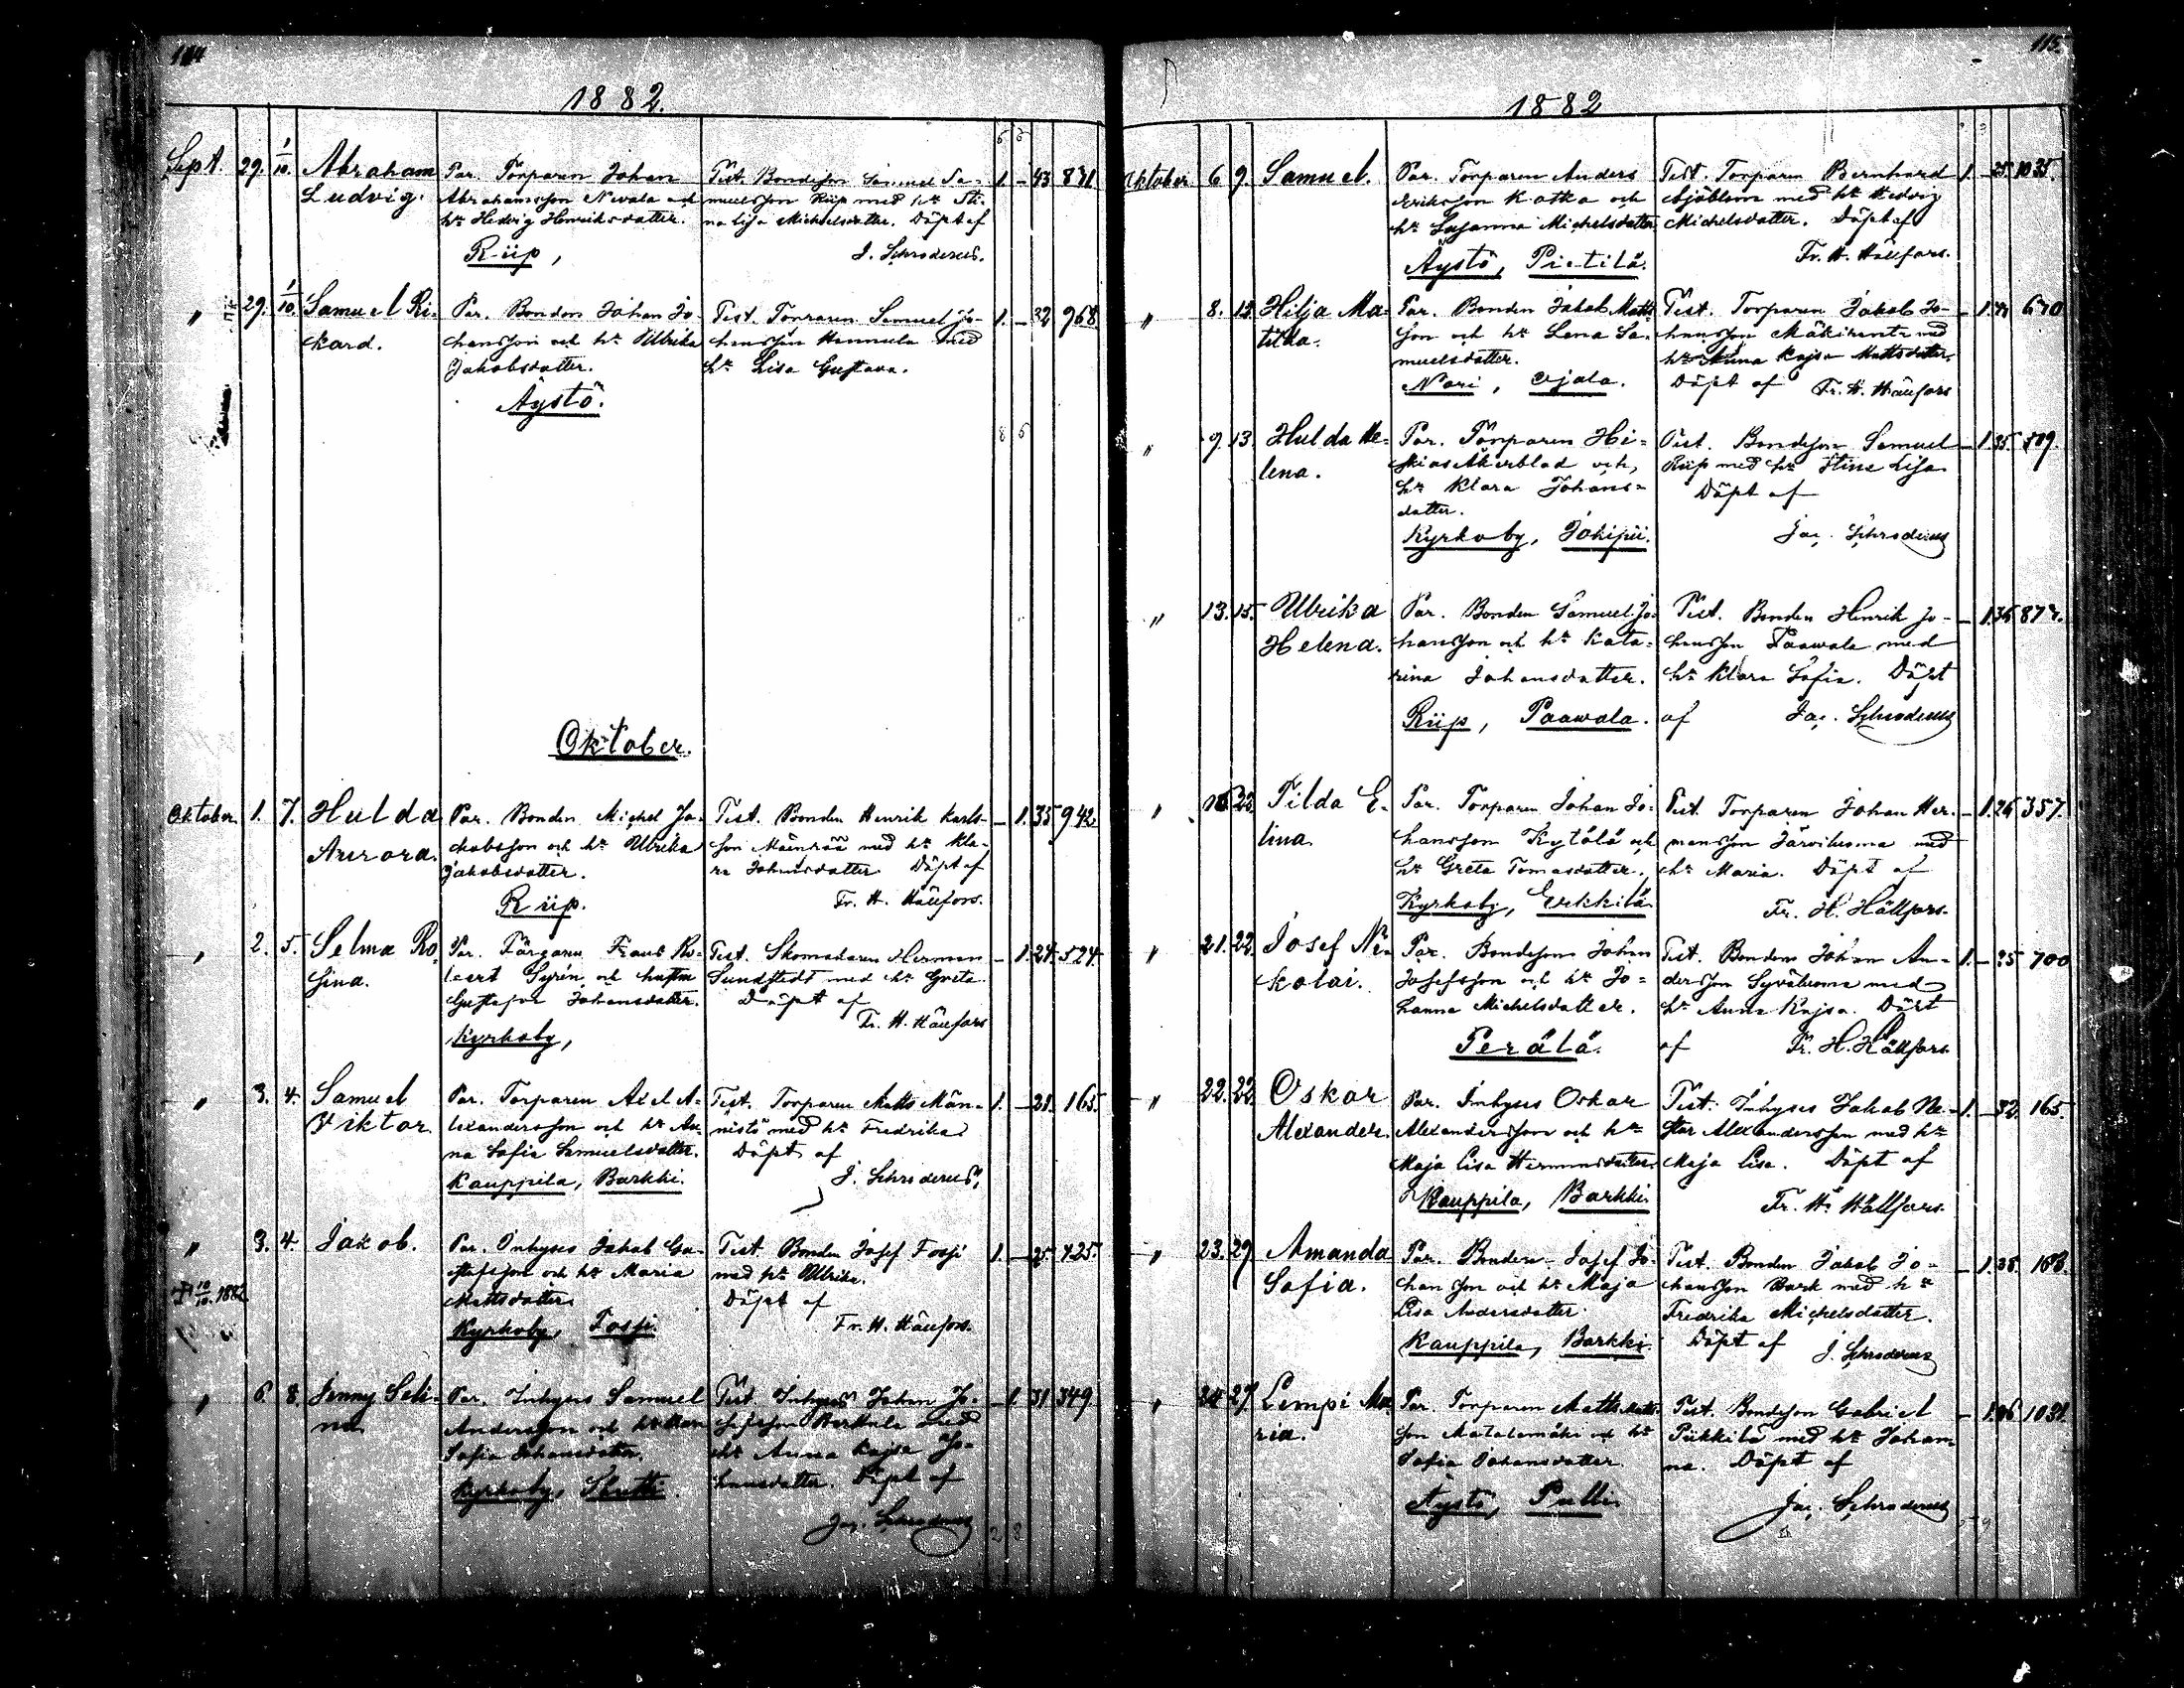 114
1882.
Sept. 29. 1/10. Abraham Ludvig.
Par. Torparen Johan
Abrahamsson Nevala och
hu Hedvig Henriksdatter.
Riip,
Test. Bondeson Samuel Sa-
muelsson Riip med hu Sti-
na Lisa Michelsdatter. Döpt af
J. Schroderus.
1. — 43 831
" 29. 1/10. Samuel Ri-
kard.
Par. Bonden Johan Jo-
hansson och hu Ulrika
Jakobsdatter.
Äystö.
Test. Torparen Samuel Jo-
hansson Hannula med
hu Lisa Gustava.
1. — 32 968
Oktober.
Oktober 1. 7. Hulda
Aurora.
Par. Bonden Michel Ja-
kobsson och hu Ulrika
Jakobsdatter.
Riip.
Test. Bonden Henrik Karls-
son Mäenpää med hu Kla-
ra Johansdatter. Döpt af
Fr. H. Hällfors.
— 1. 35 942
" 2. 5. Selma Ro-
sina.
Par. Färgaren Frans Ro-
bert Syrén och hustru
Gustafva Johansdatter.
Kyrkoby,
Test. Skomakaren Herman
Sundstedt med hu Greta.
Döpt af
Fr. H. Hällfors
— 1. 24. 524.
" 3. 4. Samuel
Viktor.
Par. Torparen Axel A-
lexandersson och hu An-
na Sofia Samuelsdatter.
Kauppila, Barkki.
Test. Torparen Matts Män-
nistö med hu Fredrika
Döpt af
J. Schroderus,
1. — 28. 165.
" 3. 4. Jakob.
† 10/10. 1882
Par. Inhyses Jakob Gu-
stafsson och hu Maria
Mattsdatter.
Kyrkoby, Fossi.
Test. Bonden Josef Fossi
med hu Ulrika.
Döpt af
Fr. H. Hällfors.
1. — 25. 425.
" 6. 8. Jenny Seli-
na
Par. Inhyses Samuel
Andersson och hu
Sofia Johansdatter.
Kyrkoby,
Test. Inhyses Johan Jo-
sefsson med
hu Anna Kajsa Jo-
hansdatter. Döpt af
Jac. Schroderus
— 1. 31 349.
115.
1882
Oktober 6 9. Samuel.
Par. Torparen Anders
Eriksson Kotka och
hu Susanna Michelsdatter
Äystö, Pietilä.
Test. Torparen Bernhard
Sjöblom med hu Hedvig
Michelsdatter. Döpt af
Fr. H. Hällfors.
1. — 25. 1035.
" 8. 12. Hilja Ma-
tilda.
Par. Bonden Jakob Matts-
son och hu Lena Sa-
muelsdatter.
Nori, Ojala.
Test. Torparen Jakob Jo-
hansson Mäkiranta med
hu Anna Kajsa Mattsdatter.
Döpt af Fr. H. Hällfors
— 1. 670
" 9. 13. Hulda He-
lena.
Par. Torparen He-
skias Åkerblad och,
hu Klara Johans-
datter.
Kyrkoby, Jokipii.
Test. Bondeson Samuel
Riip med hu Stina Lisa
Döpt af
Jac. Schroderus
— 1. 35. 509.
" 13. 15. Ulrika
Helena.
Par. Bonden Samuel Jo-
hansson och hu Kata-
rina Johansdatter.
Riip, Paawola.
Test. Bonden Henrik Jo-
hansson Paawola med
hu Klara Sofia. Döpt
af Jac. Schroderus
— 1. 36 877.
" 16 22 Tilda E-
lina.
Par. Torparen Johan Jo-
hansson Kytölä och
hu Greta Tomasdatter.,
Kyrkoby, Erkkilä.
Test. Torparen Johan Her-
mansson Järviluoma med
hu Maria. Döpt af
Fr. H. Hällfors.
— 1. 26 357.
" 21. 22. Josef Ni-
kolai.
Par. Bondeson Johan
Josefsson och hu Jo-
hanna Michelsdatter.
Perälä.
Test. Bonden Johan An-
dersson Syväluoma med
hu Anna Kajsa. Döpt
af Fr. H. Hällfors.
1. — 25 700
" 22. 22. Oskar
Alexander.
Par. Inhyses Oskar
Alexandersson och hu
Maja Lisa Hermansdatter.
Kauppila, Barkki.
Test. Inhyses Jakob Ne-
stor Alexandersson med hu
Maja Lisa. Döpt af
Fr. H. Hällfors.
1. — 32 165.
" 23. 29. Amanda
Sofia.
Par. Bonden Josef Jo-
hansson och hu Maja
Lisa Andersdatter.
Kauppila, Barkki.
Test. Bonden Jakob Jo-
hansson Bark med hu
Fredrika Michelsdatter.
Döpt af J. Schroderus
— 1. 38. 168.
" 24 27. Lempi Ma-
ria.
Par. Torparen Matts Matts-
son Matalamäki och hu
Sofia Johansdatter.
Äystö, Pulli.
Test. Bondeson Gabriel
Piikkilä med hu Johan-
na. Döpt af
Jac. Schroderus
— 1. 26 1031.